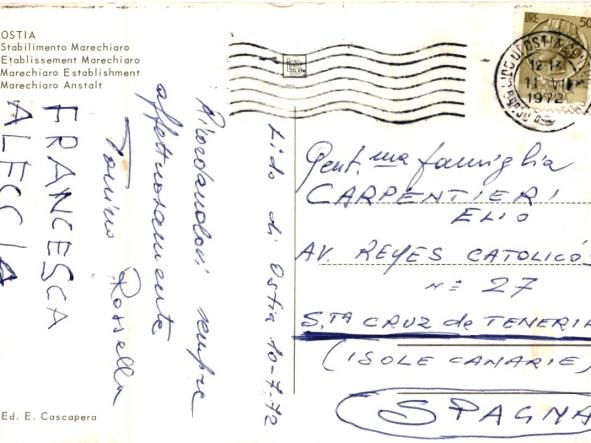 OSTIA
Stabilimento Marechiaro
Etablissement Marechiaro
Marechiaro Establishment
Marechiaro Anstalt
LIRE 50
OSTIA
12-1
1972
Lido di Ostia 10-7-72
Ricordandovi sempre
affettuosamente
Tonino Rossella
FRANCESCA
ALECCIA
Gent.ma famiglia
CARPENTIERI
ELIO
AV. REYES CATOLICOS
n= 27
S.TA CRUZ de TENERIF
(ISOLE CANARIE)
SPAGNA
Ed. E. Cascapera